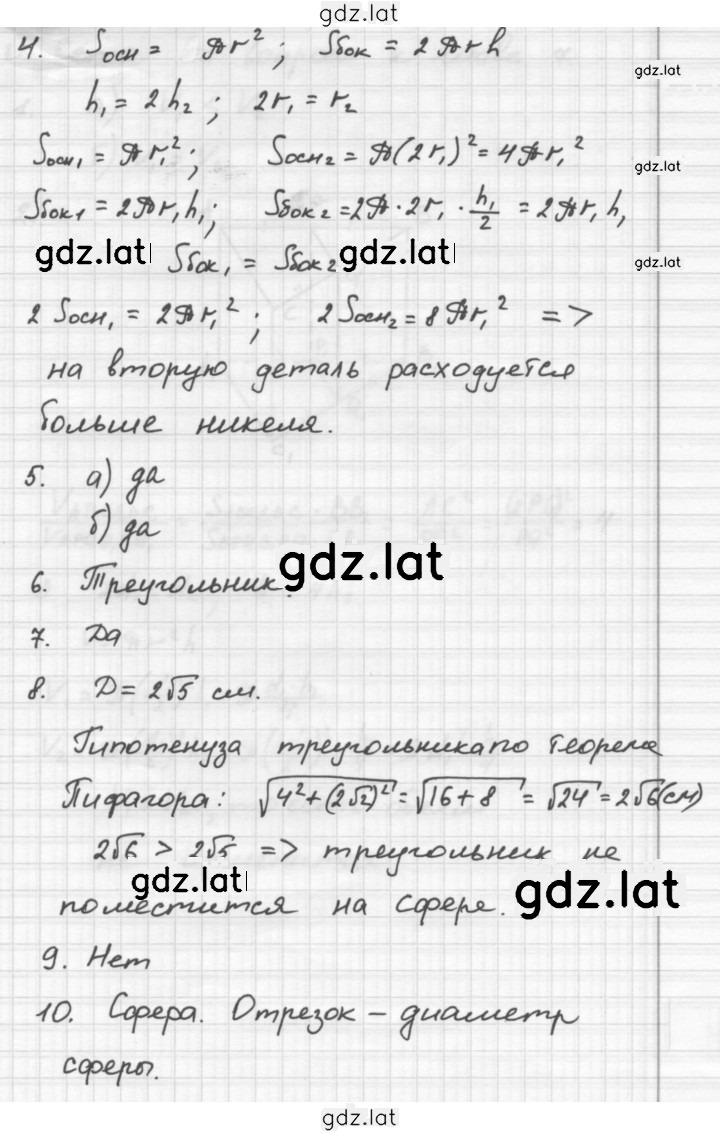 gdz.lat
4. Sосн = πr²; Sбок = 2πrh
gdz.lat
h₁ = 2h₂; 2r₁ = r₂
Sосн₁ = πr₁²; Sосн₂ = π(2r₁)² = 4πr₁²
gdz.lat
Sбок₁ = 2πr₁h₁; Sбок₂ = 2π · 2r₁ · h₁/2 = 2πr₁h₁
gdz.lat Sбок₁ = Sбок₂ gdz.lat gdz.lat
2Sосн₁ = 2πr₁²; 2Sосн₂ = 8πr₁² =>
на вторую деталь расходуется
больше никеля.
5. а) да
б) да
gdz.lat
6. Треугольник.
7. Да
8. D = 2√5 см.
Гипотенуза треугольника по теореме
Пифагора: √(4²+(2√2)²) = √(16+8) = √24 = 2√6 (см)
2√6 > 2√5 => треугольник не
gdz.lat gdz.lat
поместится на сфере.
9. Нет
10. Сфера. Отрезок – диаметр
сферы.
gdz.lat